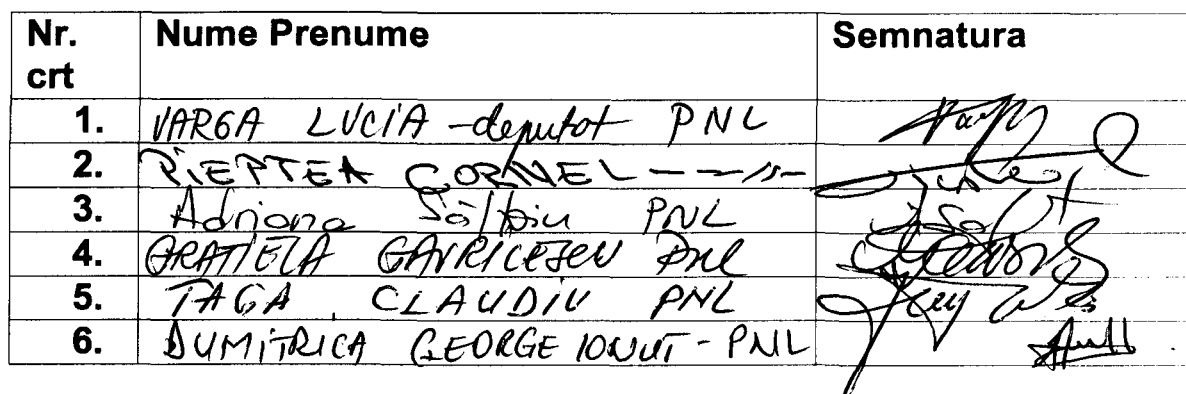 Nr. crt Nume Prenume Semnatura
1. VARGA LUCIA - deputat PNL
2. PIEPTEA CORNEL - - -//-
3. Adriana Săftoiu PNL
4. GRATIELA GAVRICESCU PNL
5. TAGA CLAUDIU PNL
6. DUMITRICA GEORGE IONUT - PNL